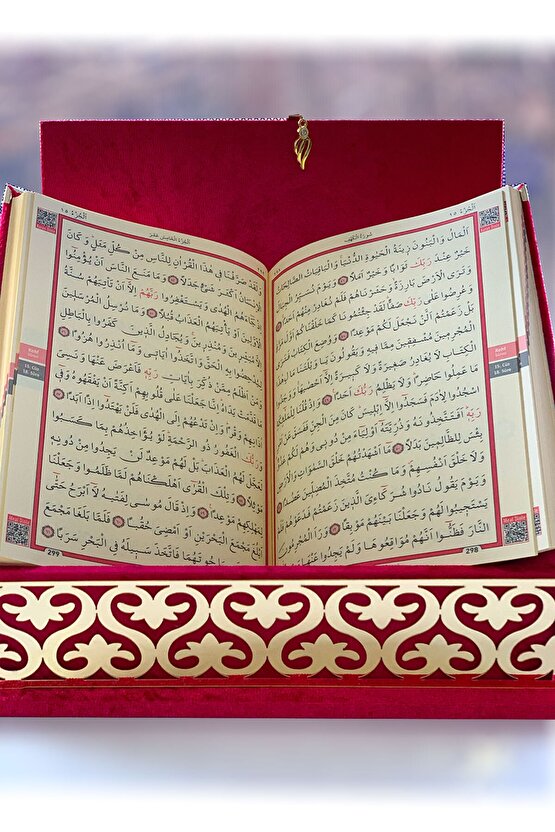 اَلْجُزْءُ ١٥
سُورَةُ الْكَهْفِ
Meal Dinle
اَلْمَالُ وَالْبَنُونَ زِينَةُ الْحَيٰوةِ الدُّنْيَا وَالْبَاقِيَاتُ الصَّالِحَاتُ
خَيْرٌ عِنْدَ رَبِّكَ ثَوَابًا وَخَيْرٌ اَمَلًا وَيَوْمَ نُسَيِّرُ الْجِبَالَ
وَتَرَى الْاَرْضَ بَارِزَةً وَحَشَرْنَاهُمْ فَلَمْ نُغَادِرْ مِنْهُمْ اَحَدًا
وَعُرِضُوا عَلٰى رَبِّكَ صَفًّا لَقَدْ جِئْتُمُونَا كَمَا خَلَقْنَاكُمْ اَوَّلَ
بَلْ زَعَمْتُمْ اَلَّنْ نَجْعَلَ لَكُمْ مَوْعِدًا وَوُضِعَ الْكِتَابُ
الْمُجْرِمِينَ مُشْفِقِينَ مِمَّا فِيهِ وَيَقُولُونَ يَا وَيْلَتَنَا
الْكِتَابِ لَا يُغَادِرُ صَغِيرَةً وَلَا كَبِيرَةً اِلَّٓا اَحْصٰيهَا
مَا عَمِلُوا حَاضِرًا وَلَا يَظْلِمُ رَبُّكَ اَحَدًا وَاِذْ
اسْجُدُوا لِاٰدَمَ فَسَجَدُٓوا اِلَّٓا اِبْلِيسَ كَانَ مِنَ الْجِنِّ فَفَسَقَ
رَبِّهٖ اَفَتَتَّخِذُونَهُ وَذُرِّيَّتَهُٓ اَوْلِيَٓاءَ مِنْ دُونِي وَهُمْ لَكُمْ
بِئْسَ لِلظَّالِمِينَ بَدَلًا مَٓا اَشْهَدْتُهُمْ خَلْقَ السَّمٰوَاتِ وَالْاَرْضِ
وَلَا خَلْقَ اَنْفُسِهِمْ وَمَا كُنْتُ مُتَّخِذَ الْمُضِلِّينَ عَضُدًا
وَيَوْمَ يَقُولُ نَادُوا شُرَكَٓاءِيَ الَّذِينَ زَعَمْتُمْ فَدَعَوْهُمْ
يَسْتَجِيبُوا لَهُمْ وَجَعَلْنَا بَيْنَهُمْ مَوْبِقًا وَرَاَ الْمُجْرِمُونَ
النَّارَ فَظَنُّٓوا اَنَّهُمْ مُوَاقِعُوهَا وَلَمْ يَجِدُوا عَنْهَا
Kehf
Sûresi
15. Cüz
18. Sûre
Meal Dinle
298
اَلْجُزْءُ ١٥
اَلْجُزْءُ الْخَامِسَ عَشَرَ
وَلَقَدْ صَرَّفْنَا فِي هٰذَا الْقُرْاٰنِ لِلنَّاسِ مِنْ كُلِّ مَثَلٍ وَكَانَ
الْاِنْسَانُ اَكْثَرَ شَيْءٍ جَدَلًا وَمَا مَنَعَ النَّاسَ اَنْ يُؤْمِنُٓوا
جَٓاءَهُمُ الْهُدٰى وَيَسْتَغْفِرُوا رَبَّهُمْ اِلَّٓا اَنْ تَأْتِيَهُمْ سُنَّةُ
الْاَوَّلِينَ اَوْ يَأْتِيَهُمُ الْعَذَابُ قُبُلًا وَمَا نُرْسِلُ الْمُرْسَلِينَ
مُبَشِّرِينَ وَمُنْذِرِينَ وَيُجَادِلُ الَّذِينَ كَفَرُوا بِالْبَاطِلِ
لِيُدْحِضُوا بِهِ الْحَقَّ وَاتَّخَذُٓوا اٰيَاتِي وَمَٓا اُنْذِرُوا هُزُوًا
اَظْلَمُ مِمَّنْ ذُكِّرَ بِاٰيَاتِ رَبِّهٖ فَاَعْرَضَ عَنْهَا وَنَسِيَ
قَدَّمَتْ يَدَاهُ اِنَّا جَعَلْنَا عَلٰى قُلُوبِهِمْ اَكِنَّةً اَنْ يَفْقَهُوهُ وَفِٓي
اٰذَانِهِمْ وَقْرًا وَاِنْ تَدْعُهُمْ اِلَى الْهُدٰى فَلَنْ يَهْتَدُٓوا اِذًا اَبَدًا
وَرَبُّكَ الْغَفُورُ ذُو الرَّحْمَةِ لَوْ يُؤَاخِذُهُمْ بِمَا كَسَبُوا
لَعَجَّلَ لَهُمُ الْعَذَابَ بَلْ لَهُمْ مَوْعِدٌ لَنْ يَجِدُوا مِنْ دُونِهٖ
مَوْئِلًا وَتِلْكَ الْقُرٰٓى اَهْلَكْنَاهُمْ لَمَّا ظَلَمُوا وَجَعَلْنَا
لِمَهْلِكِهِمْ مَوْعِدًا وَاِذْ قَالَ مُوسٰى لِفَتٰيهُ لَٓا اَبْرَحُ حَتّٰٓى
اَبْلُغَ مَجْمَعَ الْبَحْرَيْنِ اَوْ اَمْضِيَ حُقُبًا فَلَمَّا بَلَغَا مَجْمَعَ
حُوتَهُمَا فَاتَّخَذَ سَبِيلَهُ فِي الْبَحْرِ سَرَبًا
Meal Dinle
Kehf
Sûresi
15. Cüz
18. Sûre
Meal Dinle
299